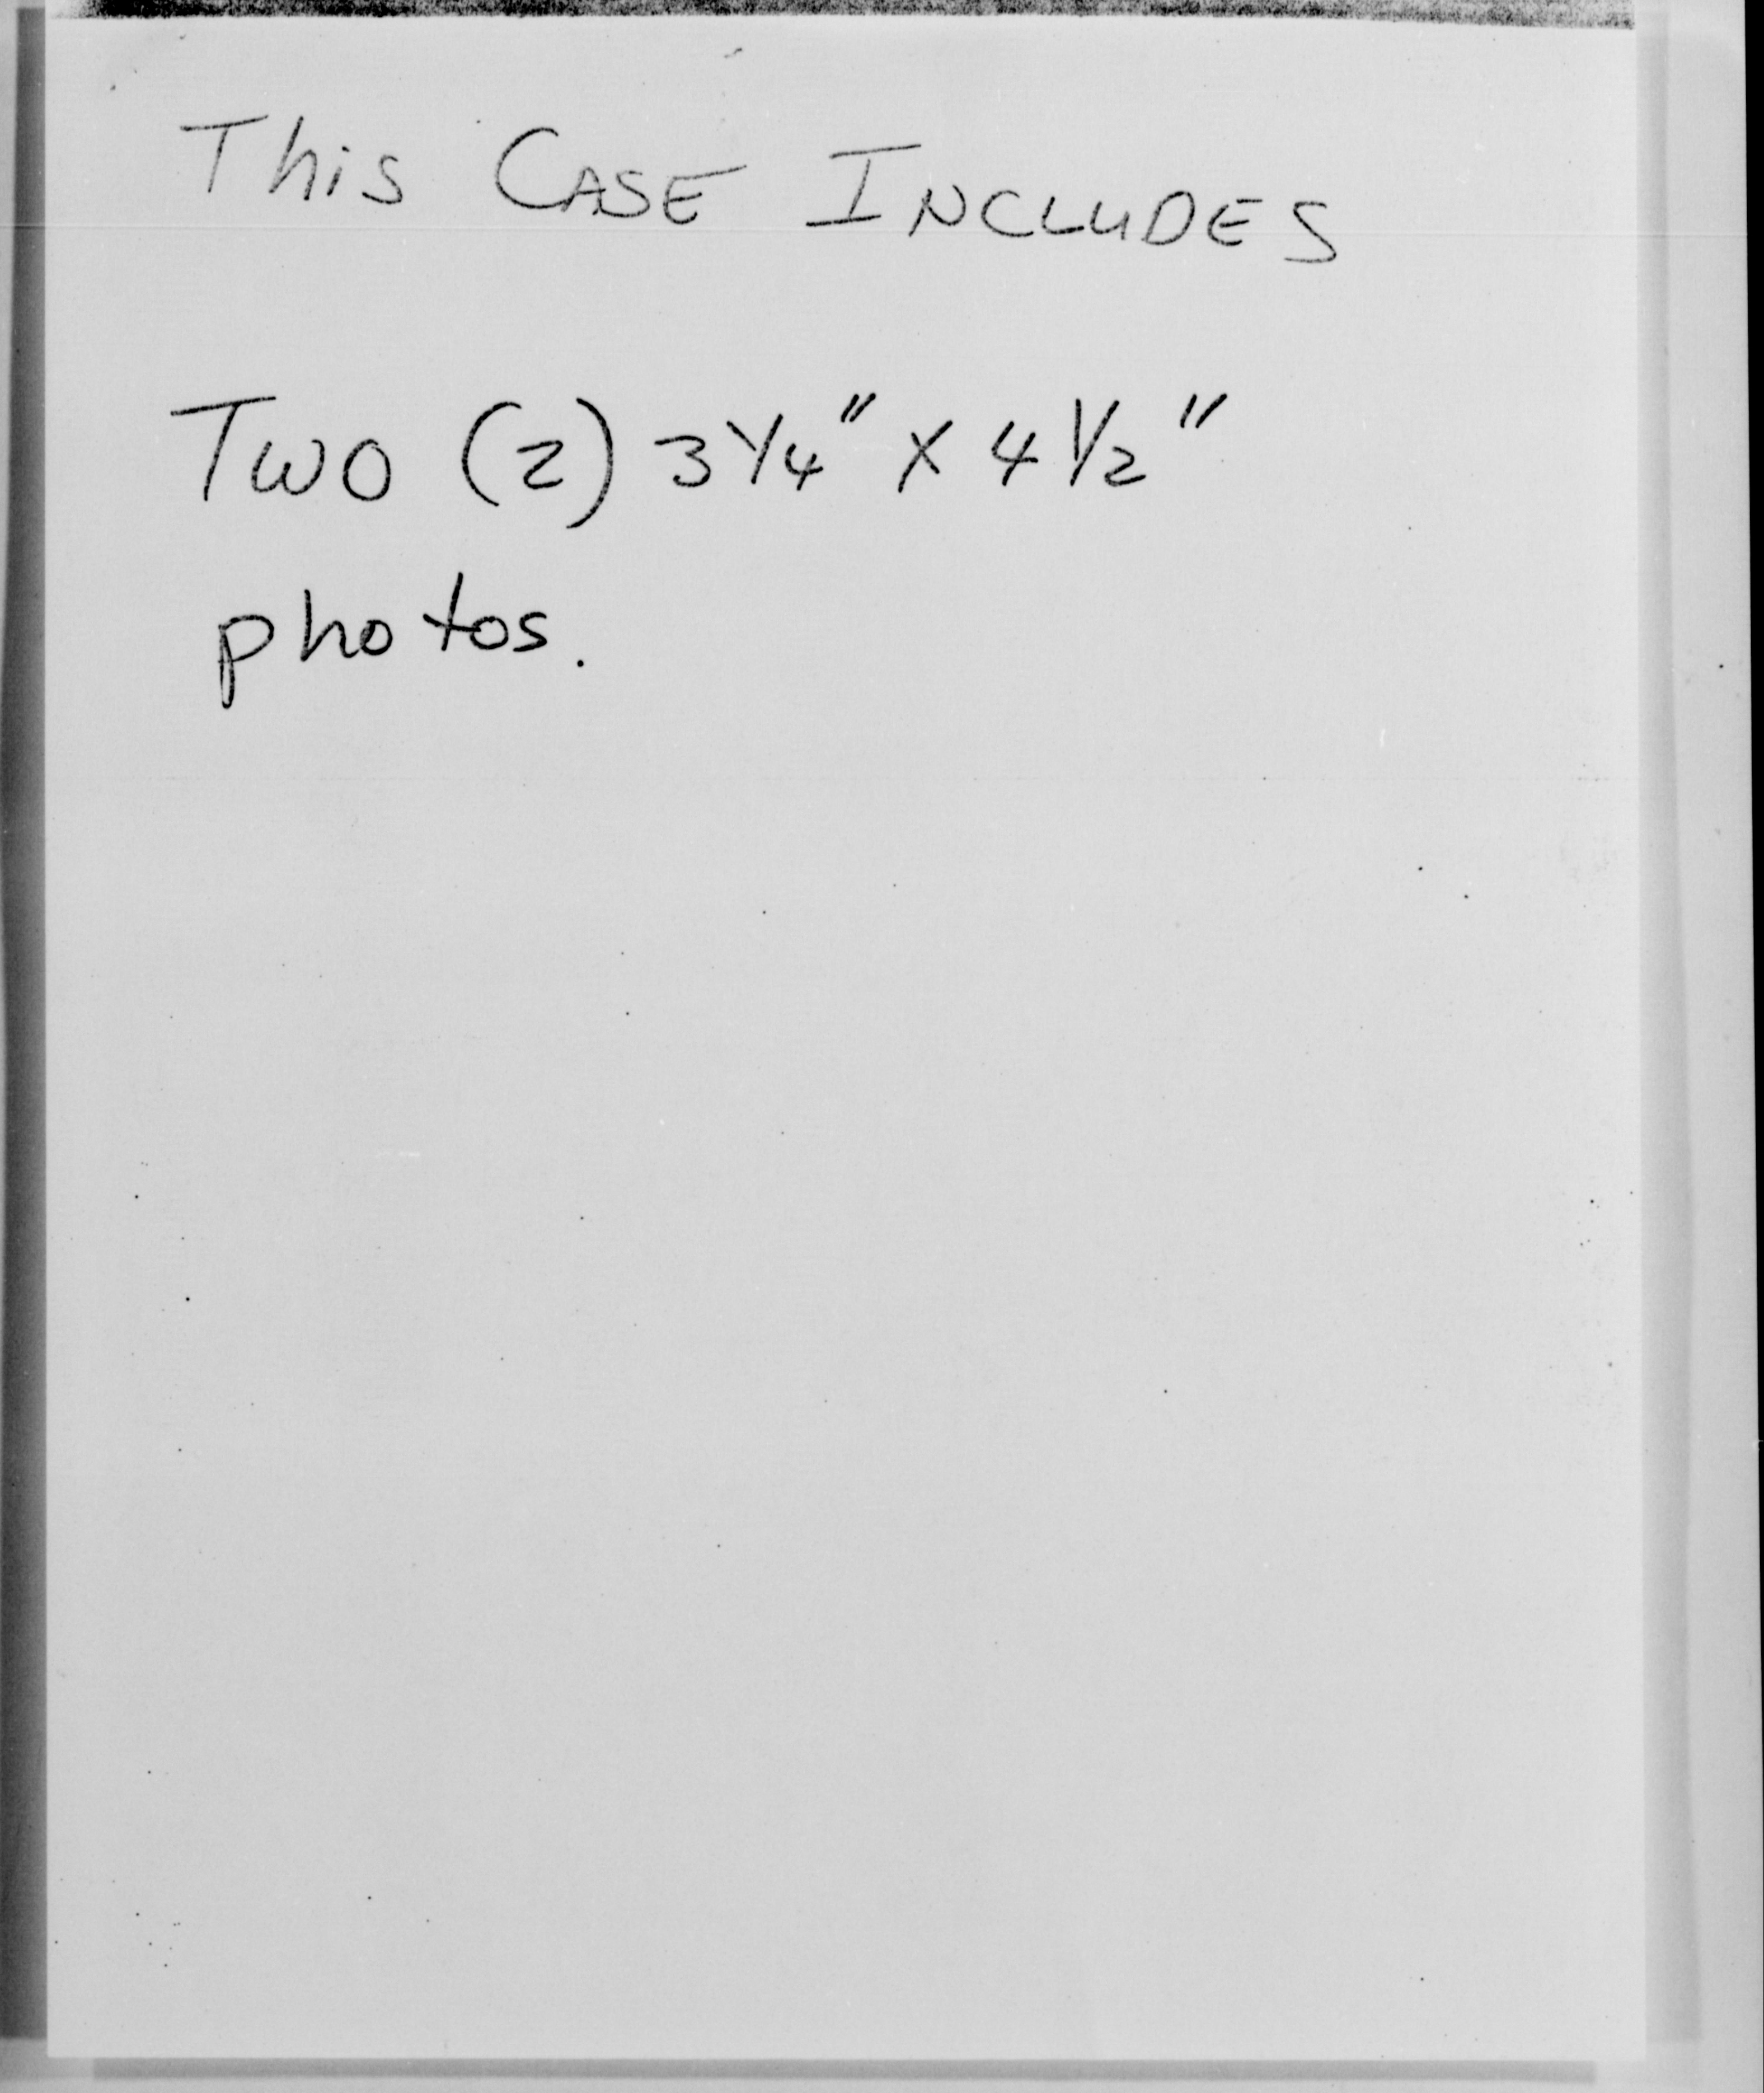 This CASE INCLUDES
Two (2) 3 1/4" X 4 1/2"
photos.